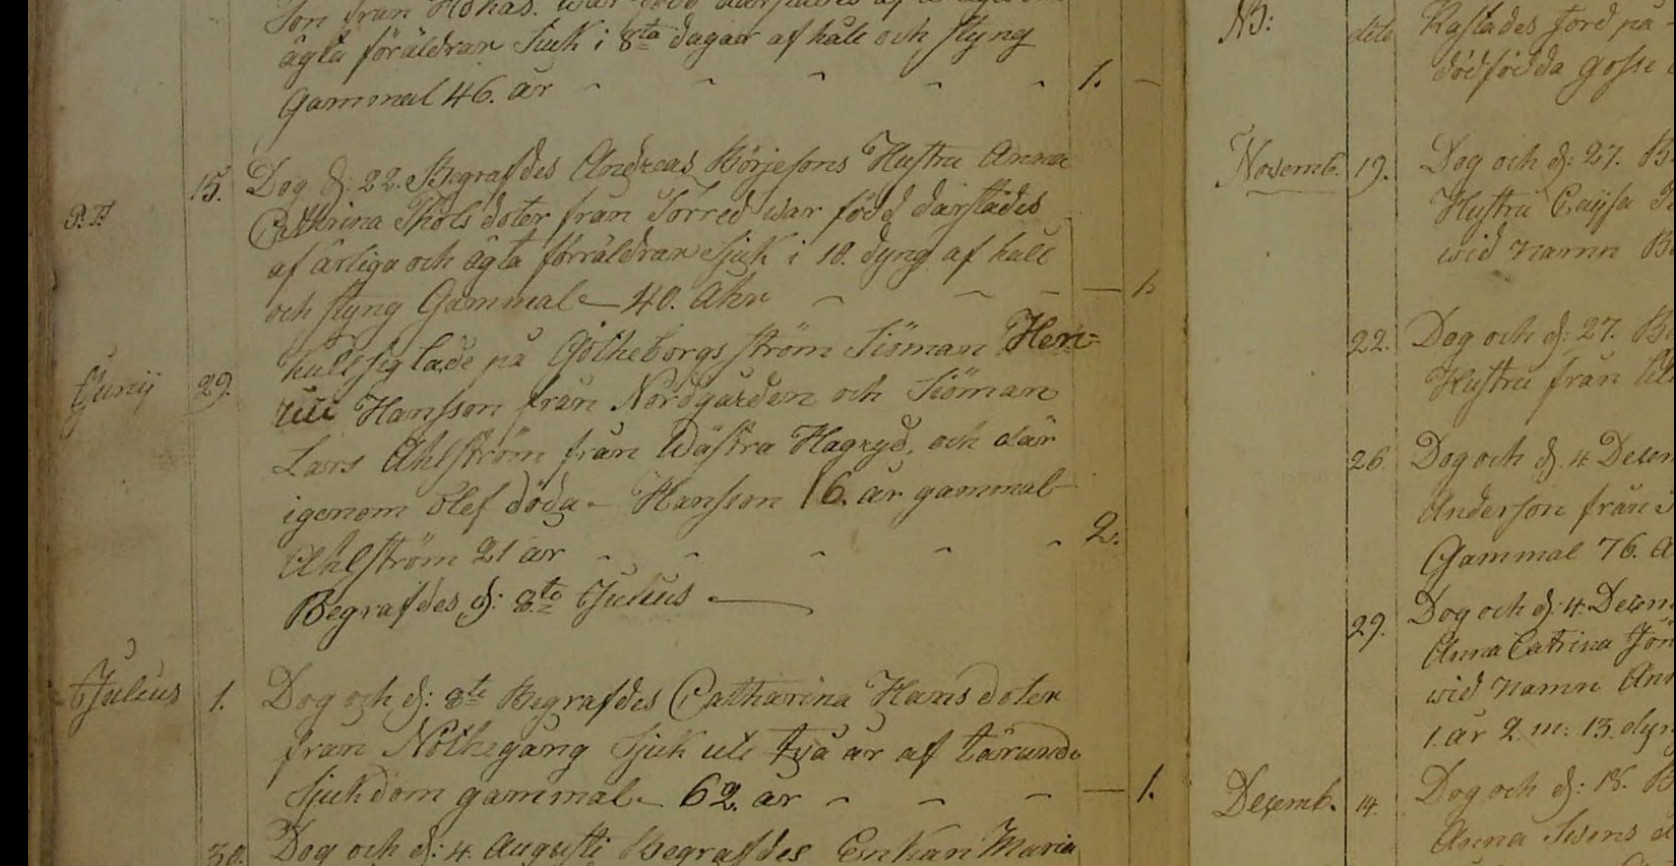 Son från Hökås. war född därstädes af ärliga och
ägta föräldrar Siuk i 8ta dagar af håll och styng
Gammal 46. år - - - - - 1. -
15. Dog d: 22. Begrafdes Andreas Börjesons Hustru Anna
P. T. Cathrina Thols doter från Torred war född därstädes
af ärliga och ägta förräldrar Sjuk i 18. dyng af håll
och styng Gammal - 40. Åhr - - - - 1.
kullseglade på Götheborgs ström Siöman Hen-
Junij 29. rich Hansson från Nordgården och Siöman
Lars Ahlström från Wästra Hagryd, och där
igenom blef döda - Hansson 16. år gammal
Ahlström 21 år - - - - - 2.
Begrafdes d: 8te Julius
Julius 1. Dog och d: 8te Begrafdes Catharina Hansdoter
från Nöthegång Sjuk uti två år af tärande
Sjukdom gammal - 62. år - - - - 1.
30. Dog och d: 4. Augusti Begrafdes Enkan Maria
NB: dito Kastades Jord på
dödfödda gosse
Novemb. 19. Dog och d: 27. B
Hustru Cajsa
wid namn B
22. Dog och d: 27. B
Hustru från
26. Dog och d. 4 Decem
Anderson från
Gammal 76. Å
29. Dog och d: 4. Decem
Anna Catrina Jön
wid namn Ann
1. år 2. m: 13. dyn
Decemb. 14. Dog och d: 18. B
Anna Swens d